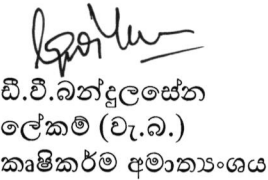 ඩී.වී.බන්දුලසේන
ලේකම් (වැ.බ.)
කෘෂිකර්ම අමාත්‍යංශය